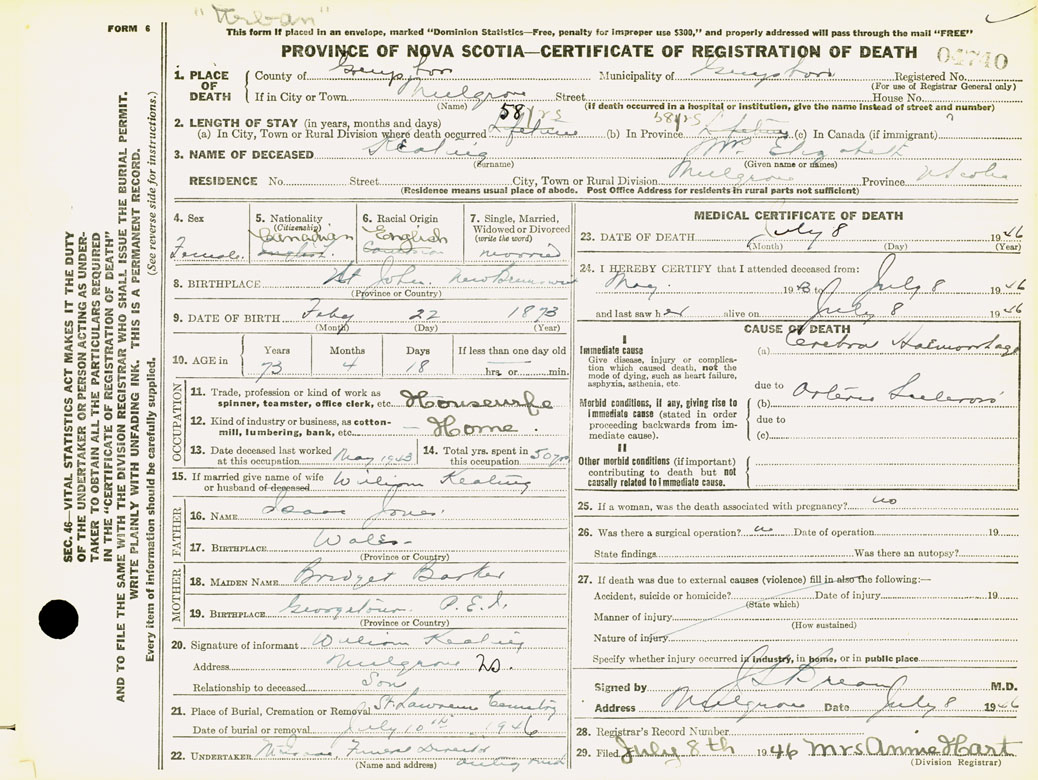 "Urban"
FORM 6
This form If placed in an envelope, marked "Dominion Statistics—Free, penalty for improper use $300," and properly addressed will pass through the mail "FREE"
PROVINCE OF NOVA SCOTIA—CERTIFICATE OF REGISTRATION OF DEATH
04740
1. PLACE OF DEATH
County of Guysboro Municipality of Guysboro Registered No.
(For use of Registrar General only)
If in City or Town Mulgrave Street House No.
(Name) (If death occurred in a hospital or institution, give the name instead of street and number)
2. LENGTH OF STAY (in years, months and days) 58 yrs 58 yrs
(a) In City, Town or Rural Division where death occurred Lifetime (b) In Province Lifetime (c) In Canada (if immigrant) ?
3. NAME OF DECEASED Keating Mrs Elizabeth
(Surname) (Given name or names)
RESIDENCE No. Street City, Town or Rural Division Mulgrave Province N Scotia
(Residence means usual place of abode. Post Office Address for residents in rural parts not sufficient)
4. Sex Female
5. Nationality (Citizenship) Canadian
6. Racial Origin English
7. Single, Married, Widowed or Divorced (write the word) married
8. BIRTHPLACE St John New Brunswick
(Province or Country)
9. DATE OF BIRTH Feby 22 1873
(Month) (Day) (Year)
10. AGE in Years Months Days If less than one day old
73 4 18 hrs. or min.
OCCUPATION
11. Trade, profession or kind of work as spinner, teamster, office clerk, etc. Housewife
12. Kind of industry or business, as cotton-mill, lumbering, bank, etc. – Home.
13. Date deceased last worked at this occupation May 1943
14. Total yrs. spent in this occupation 50 yrs
15. If married give name of wife or husband of deceased William Keating
FATHER
16. NAME Isaac Jones
17. BIRTHPLACE Wales
(Province or Country)
MOTHER
18. MAIDEN NAME Bridget Barker
19. BIRTHPLACE Georgetown P.E.I.
(Province or Country)
20. Signature of informant William Keating
Address Mulgrave NS.
Relationship to deceased Son
21. Place of Burial, Cremation or Removal St. Lawrence Cemetery
Date of burial or removal July 10th 1946
22. UNDERTAKER Funeral Director
(Name and address)
MEDICAL CERTIFICATE OF DEATH
23. DATE OF DEATH July 8 1946
(Month) (Day) (Year)
24. I HEREBY CERTIFY that I attended deceased from:
May 1943 to July 8 1946
and last saw her alive on July 8 1946
CAUSE OF DEATH
I
Immediate cause
Give disease, injury or complication which caused death, not the mode of dying, such as heart failure, asphyxia, asthenia, etc.
(a) Cerebral Haemorrhage
due to
Morbid conditions, if any, giving rise to immediate cause (stated in order proceeding backwards from immediate cause).
(b) Arterio Sclerosis
due to
(c)
II
Other morbid conditions (if important) contributing to death but not causally related to immediate cause.
25. If a woman, was the death associated with pregnancy? no
26. Was there a surgical operation? no Date of operation 19
State findings Was there an autopsy?
27. If death was due to external causes (violence) fill in also the following:—
Accident, suicide or homicide? Date of injury 19
(State which)
Manner of injury
(How sustained)
Nature of injury
Specify whether injury occurred in industry, in home, or in public place
Signed by M.D.
Address Mulgrave Date July 8 1946
28. Registrar's Record Number
29. Filed July 8th 1946 Mrs Annie Hart
(Division Registrar)
SEC. 46—VITAL STATISTICS ACT MAKES IT THE DUTY
OF THE UNDERTAKER OR PERSON ACTING AS UNDER-
TAKER TO OBTAIN ALL THE PARTICULARS REQUIRED
IN THE "CERTIFICATE OF REGISTRATION OF DEATH"
AND TO FILE THE SAME WITH THE DIVISION REGISTRAR WHO SHALL ISSUE THE BURIAL PERMIT.
WRITE PLAINLY WITH UNFADING INK. THIS IS A PERMANENT RECORD.
Every item of information should be carefully supplied. (See reverse side for instructions.)